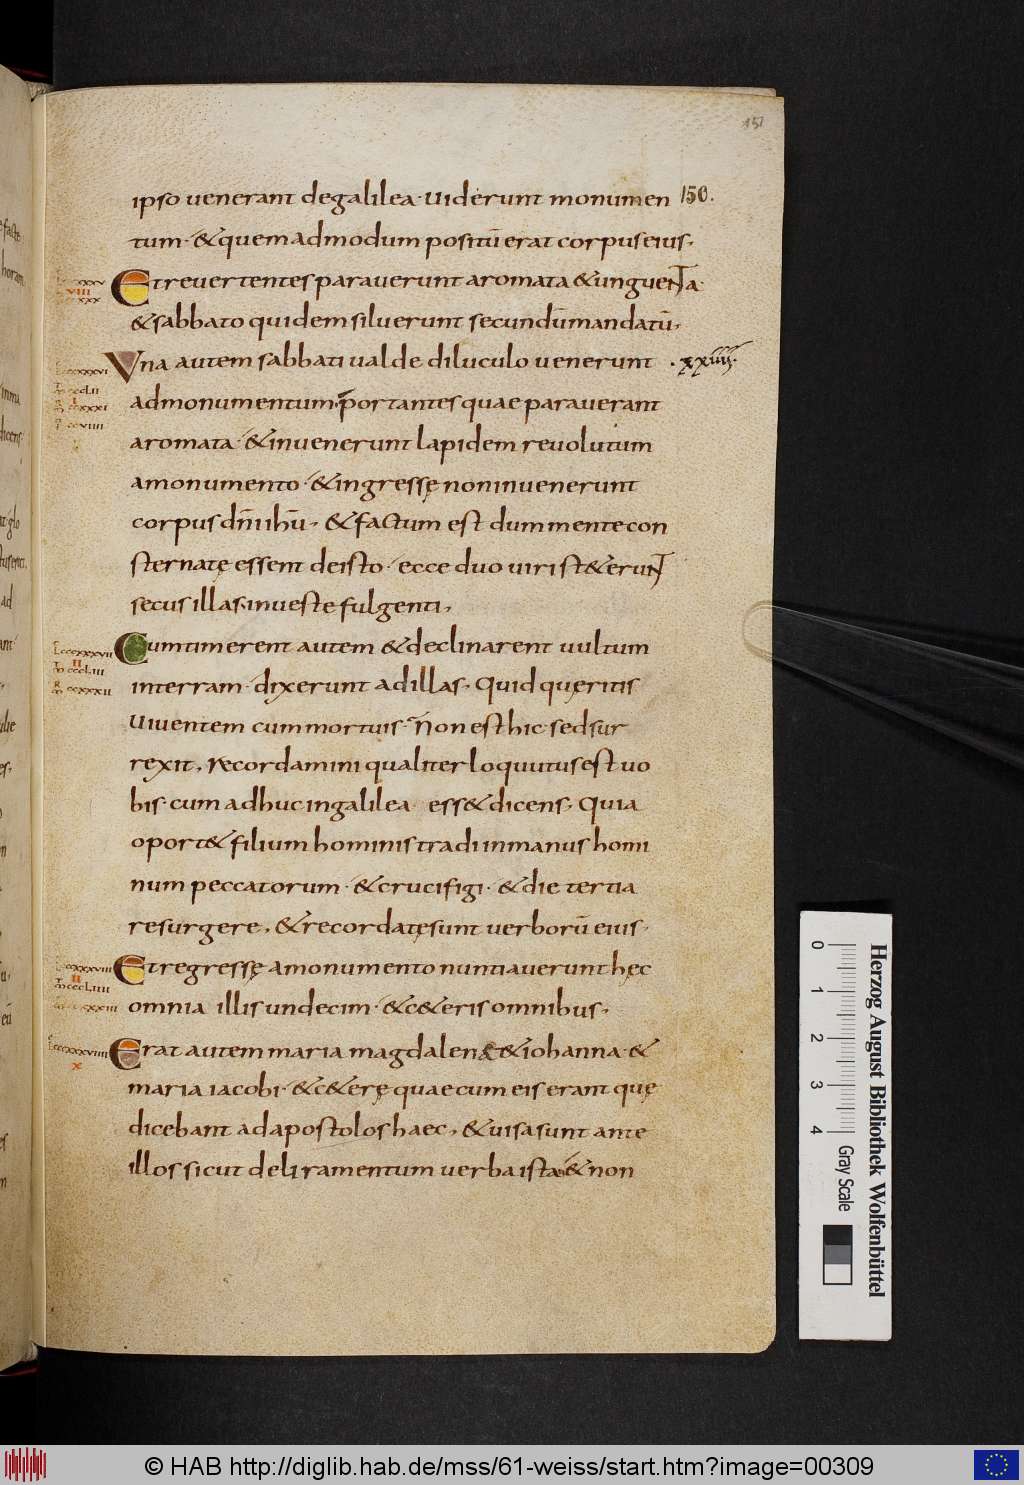 151
150.
ipso venerant degalilea· uiderunt monumen
tum· &quemadmodum positū erat corpus eius·
Etreuertentes paraverunt aromata &unguenta·
&sabbato quidem siluerunt secundū mandatū·
Una autem sabbati ualde diluculo venerunt ·xxiiii·
admonumentum· portantes quae paraverant
aromata· &invenerunt lapidem revolutum
amonumento· &ingressę noninvenerunt
corpus dn̄i ihū· &factum est dum mente con
sternatę essent deisto· ecce duo uiri st&erunt
secus illas· inueste fulgenti·
Cumtimerent autem &declinarent uultum
interram· dixerunt adillas· Quid quęritis
uiuentem cum mortuis· Non est hic sed sur
rexit· Recordamini qualiter loquutus est uo
bis· cum adhuc ingalilea ess& dicens· Quia
oport& filium hominis tradi inmanus homi
num peccatorum· &crucifigi· &die tertia
resurgere· &recordatę sunt verborū eius·
Etregressę amonumento nuntiaverunt hęc
omnia illis undecim· &c&eris omnibus·
Erat autem maria magdalenę &iohanna· &
maria iacobi· &c&erę quae cum eis erant quę
dicebant ad apostolos haec· &uisa sunt ante
illos sicut deliramentum verba ista· &non
0 1 2 3 4
Gray Scale
Herzog August Bibliothek Wolfenbüttel
© HAB http://diglib.hab.de/mss/61-weiss/start.htm?image=00309